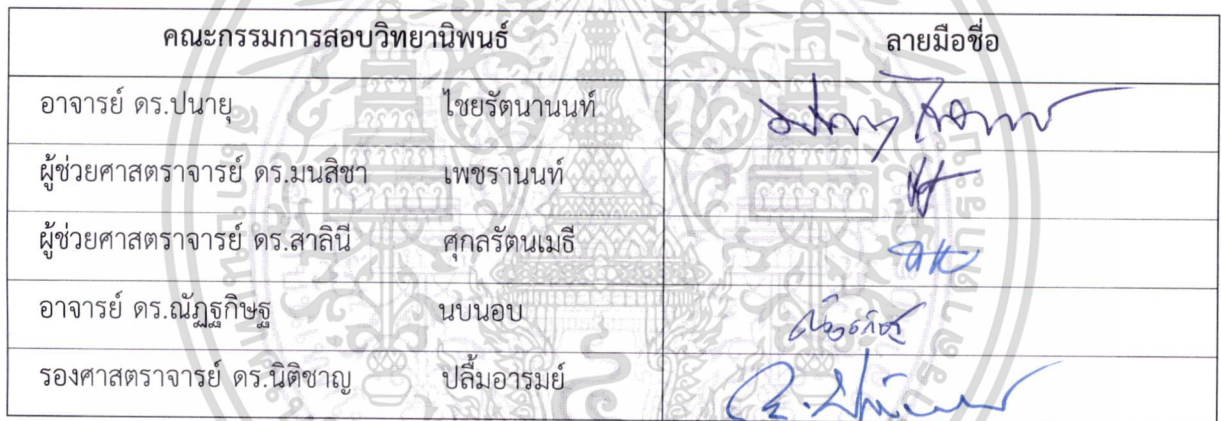 คณะกรรมการสอบวิทยานิพนธ์ ลายมือชื่อ
อาจารย์ ดร.ปนายุ ไชยรัตนานนท์
ผู้ช่วยศาสตราจารย์ ดร.มนสิชา เพชรานนท์
ผู้ช่วยศาสตราจารย์ ดร.สาลินี ศุกลรัตนเมธี
อาจารย์ ดร.ณัฏฐกิษฐ นบนอบ
รองศาสตราจารย์ ดร.นิติชาญ ปลื้มอารมย์